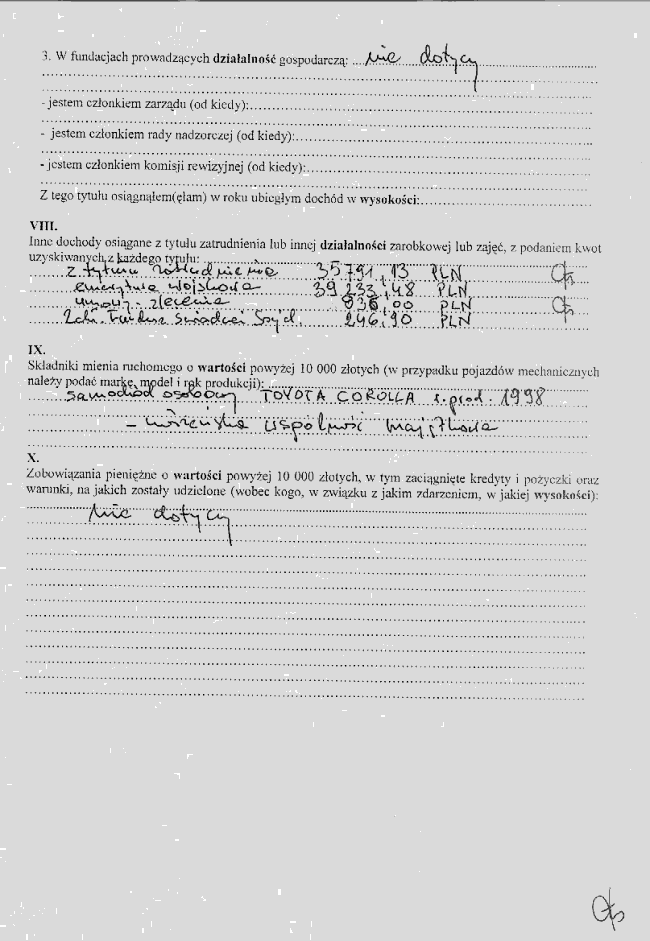 3. W fundacjach prowadzących działalność gospodarczą: nie dotyczy
- jestem członkiem zarządu (od kiedy):
- jestem członkiem rady nadzorczej (od kiedy):
- jestem członkiem komisji rewizyjnej (od kiedy):
Z tego tytułu osiągnąłem(ęłam) w roku ubiegłym dochód w wysokości:
VIII.
Inne dochody osiągane z tytułu zatrudnienia lub innej działalności zarobkowej lub zajęć, z podaniem kwot
uzyskiwanych z każdego tytułu:
z tytułu zatrudnienia 35791,13 PLN
emerytura wojskowa 39233,48 PLN
umowy-zlecenia 836,00 PLN
246,90 PLN
IX.
Składniki mienia ruchomego o wartości powyżej 10 000 złotych (w przypadku pojazdów mechanicznych
należy podać markę, model i rok produkcji):
samochód osobowy TOYOTA COROLLA r. prod. 1998
- małżeńska wspólność majątkowa
X.
Zobowiązania pieniężne o wartości powyżej 10 000 złotych, w tym zaciągnięte kredyty i pożyczki oraz
warunki, na jakich zostały udzielone (wobec kogo, w związku z jakim zdarzeniem, w jakiej wysokości):
nie dotyczy